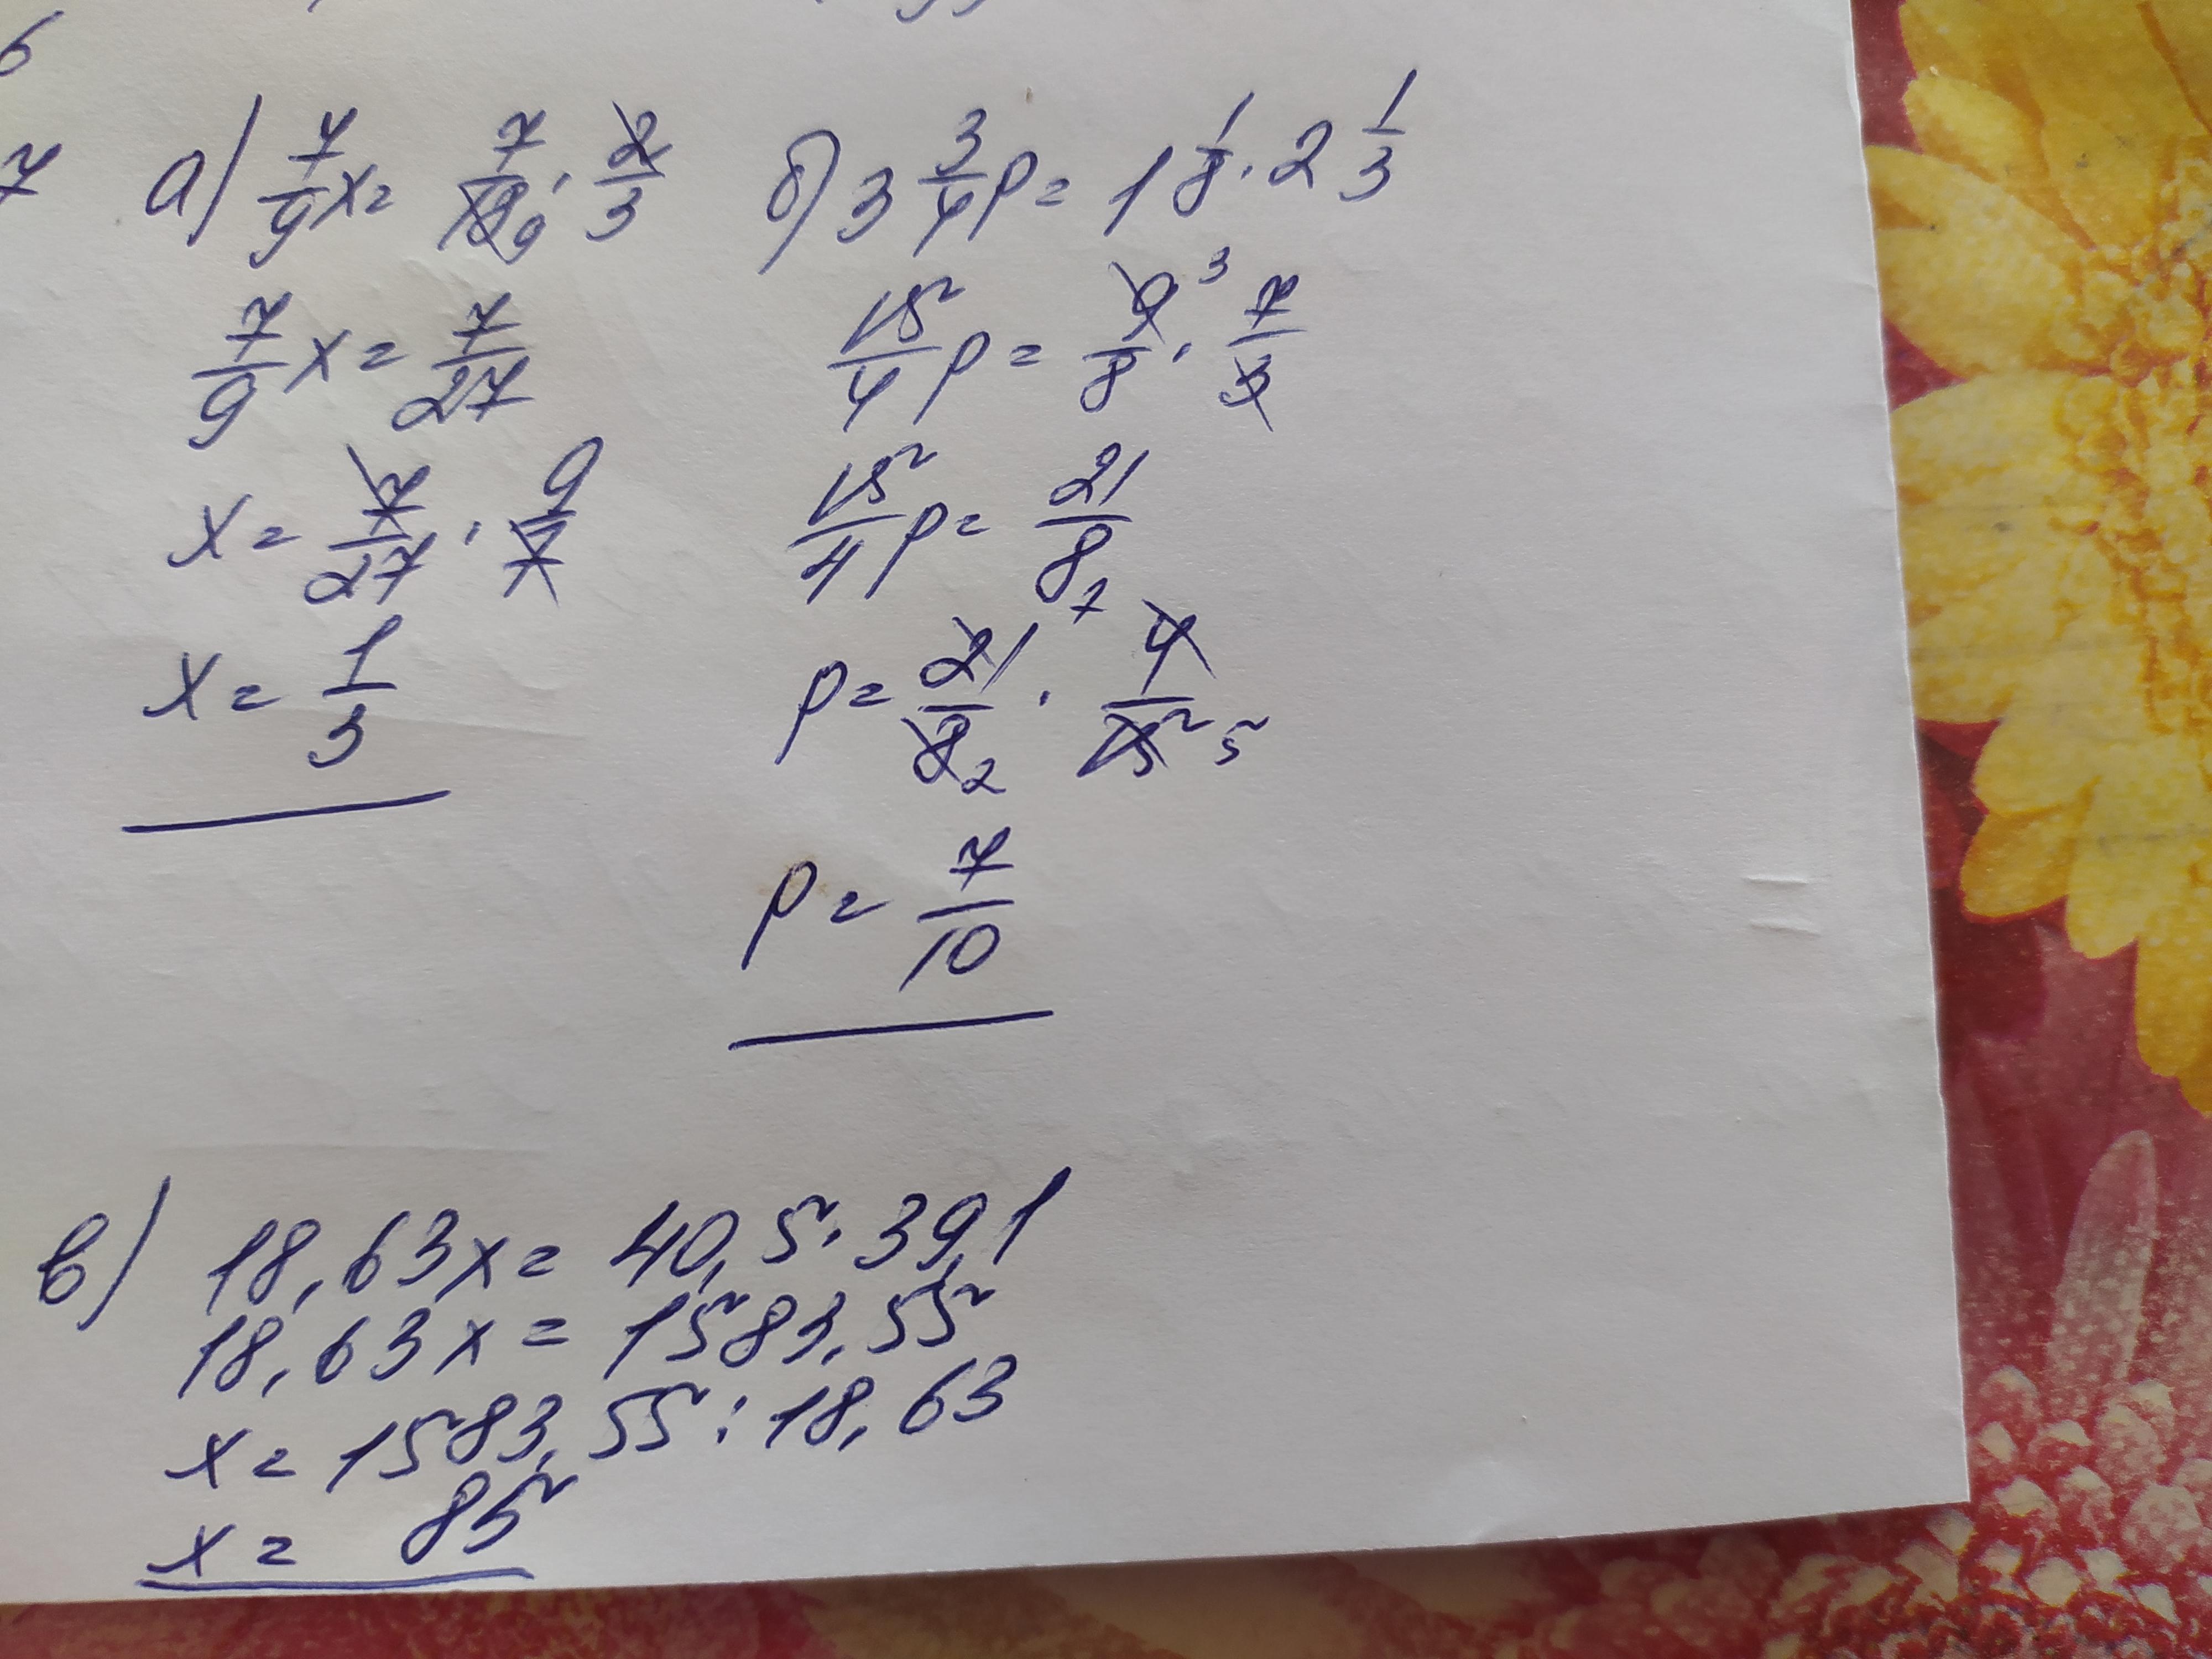 6
7
а) 7/9 x = 7/18 9 · 2/3
7/9 x = 7/27
x = 7/27 · 9/7
x = 1/3
б) 3 3/4 p = 1 1/8 · 2 1/3
15/4 p = 9 3/8 · 7/3
15/4 p = 21/8
p = 21 7/8 2 · 4/15 5
p = 7/10
в) 18,63x = 40,5 · 39,1
18,63x = 1583,55
x = 1583,55 : 18,63
x = 85